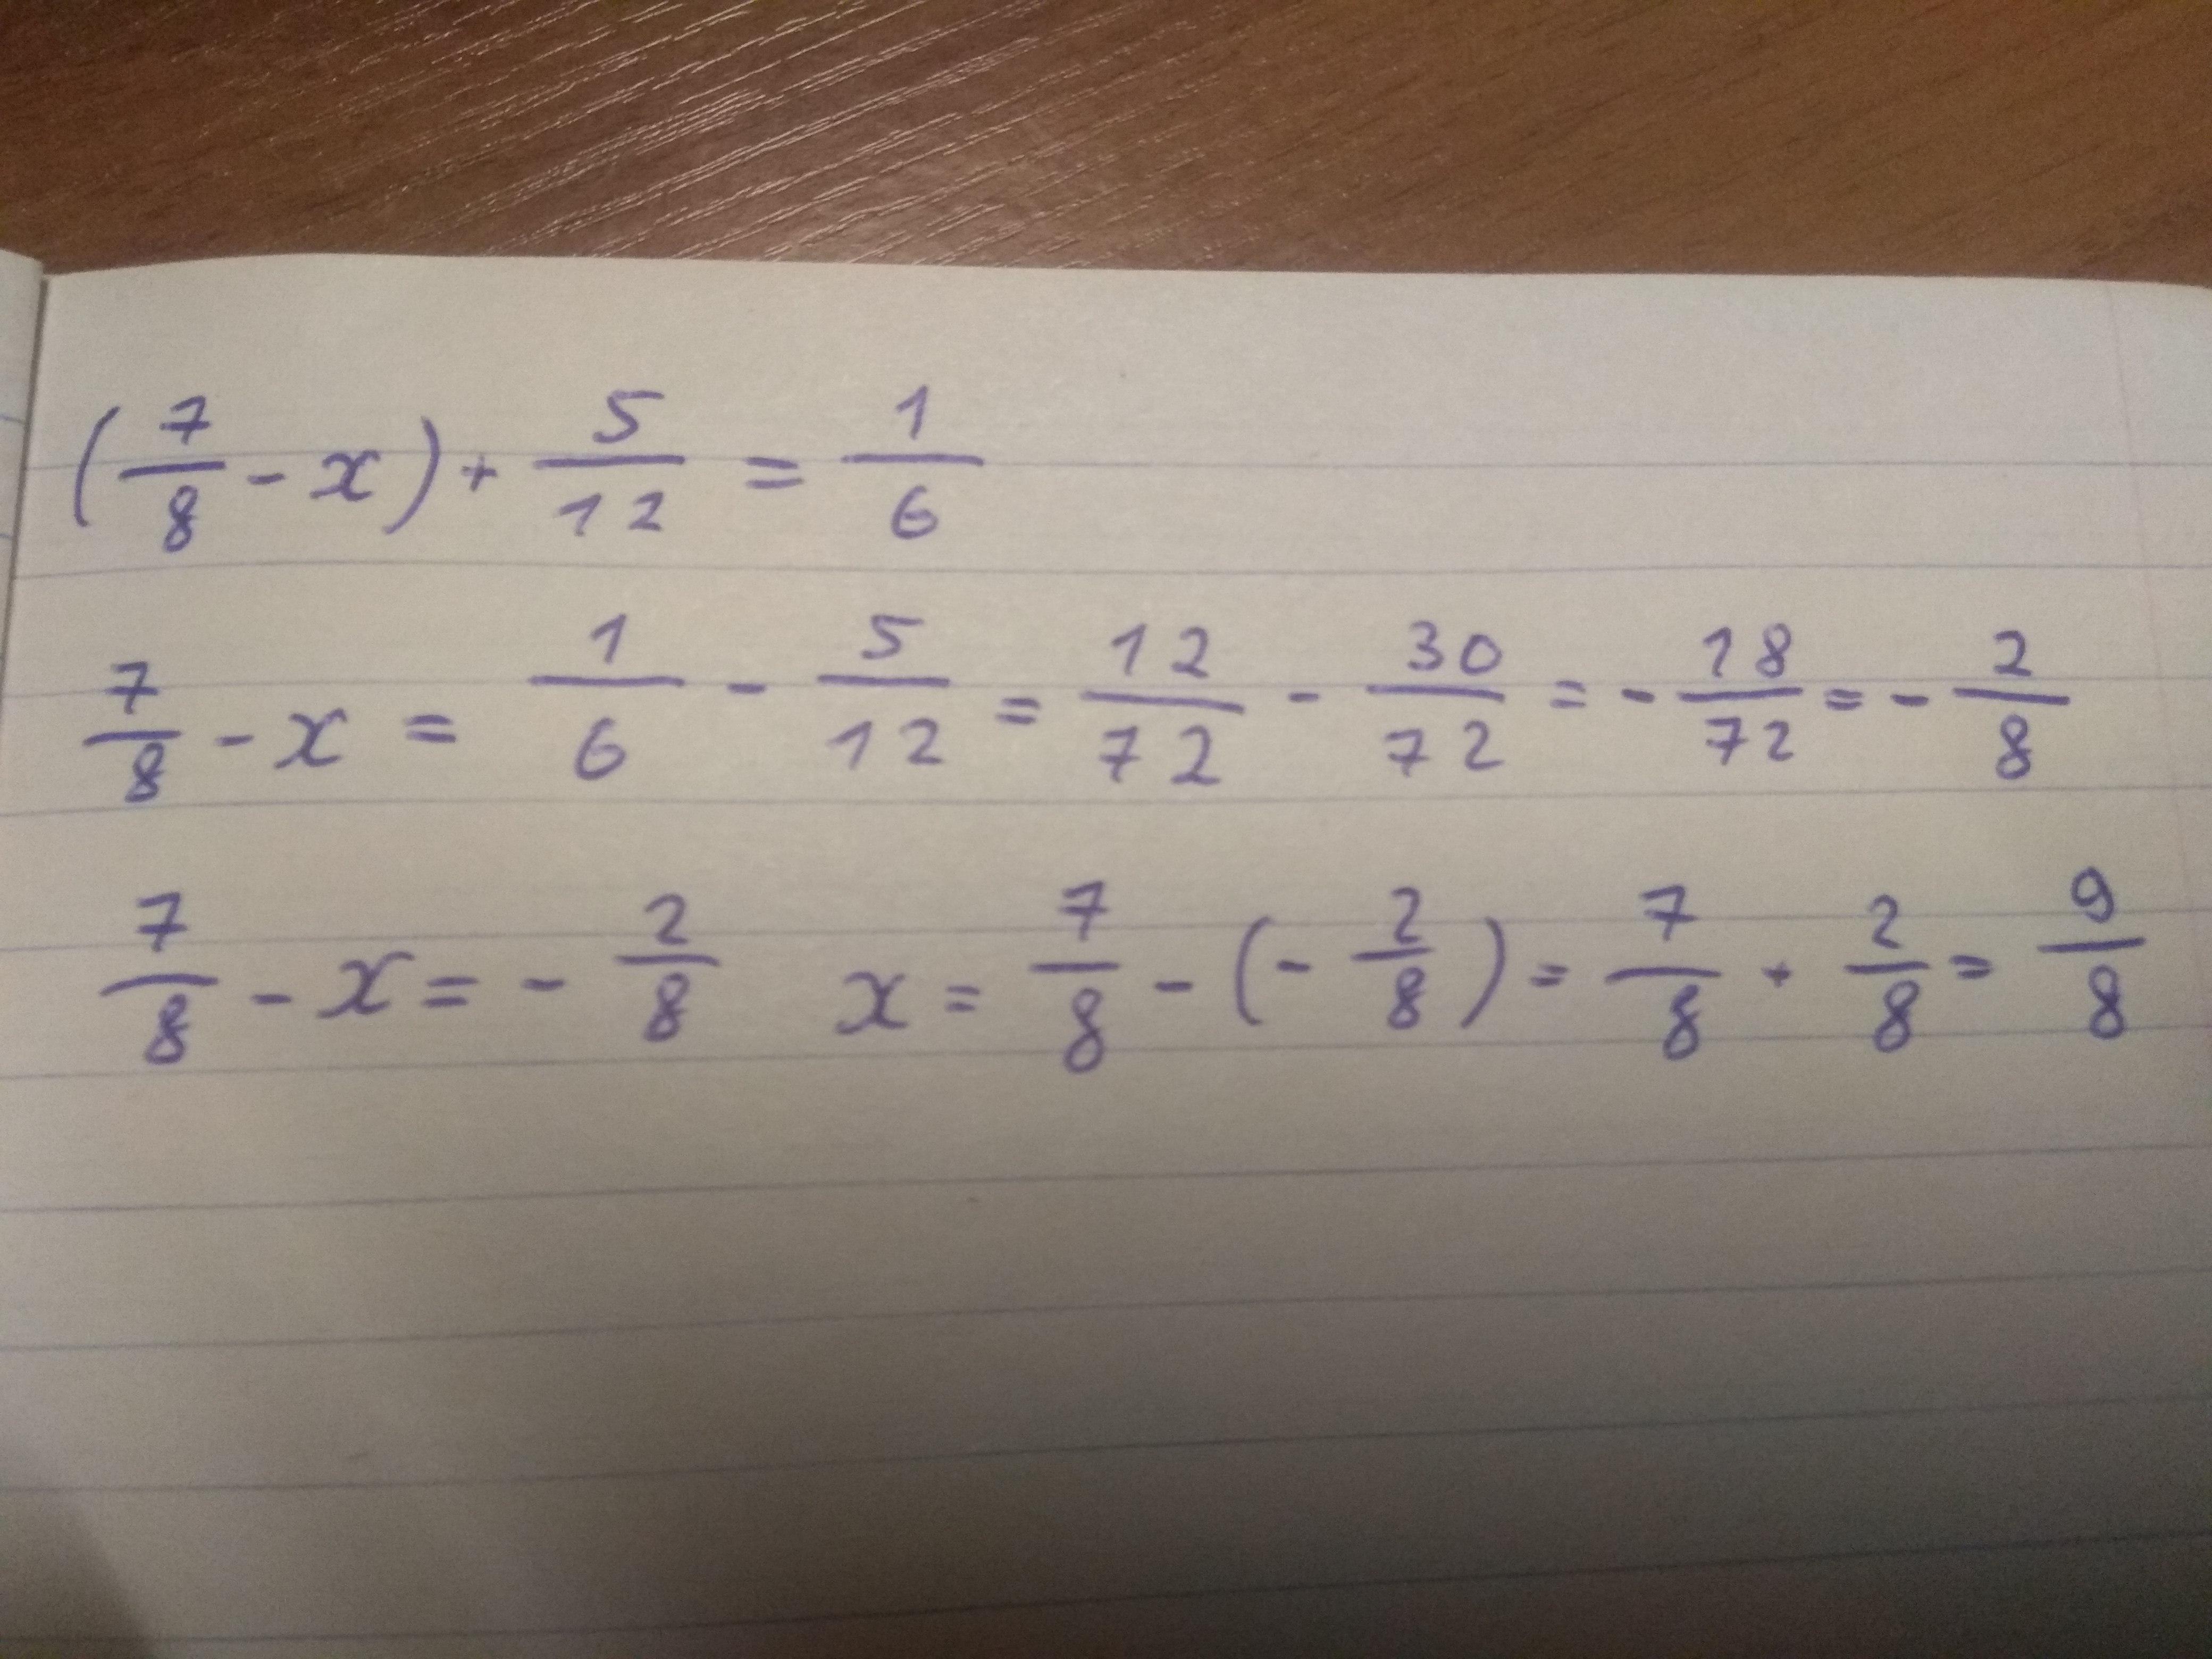 (7/8 - x) + 5/12 = 1/6
7/8 - x = 1/6 - 5/12 = 12/72 - 30/72 = - 18/72 = - 2/8
7/8 - x = - 2/8 x = 7/8 - (- 2/8) = 7/8 + 2/8 = 9/8